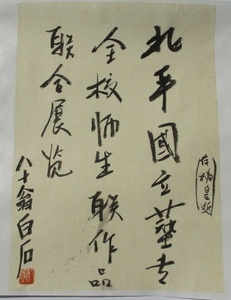 北平國立藝专
全校师生联作品
联合展览
八十翁白石